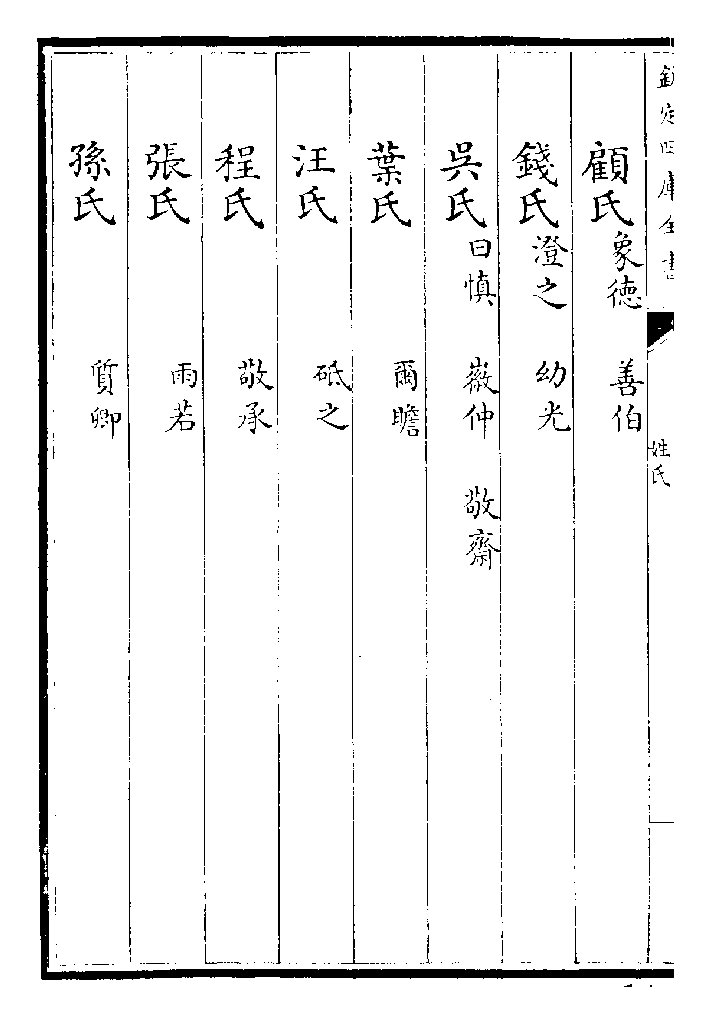 欽定四庫全書
姓氏
顧氏象德 善伯
錢氏澄之 幼光
吳氏曰慎 嶶仲 敬齋
葉氏 爾瞻
汪氏 砥之
程氏 敬承
張氏 雨若
孫氏 質卿